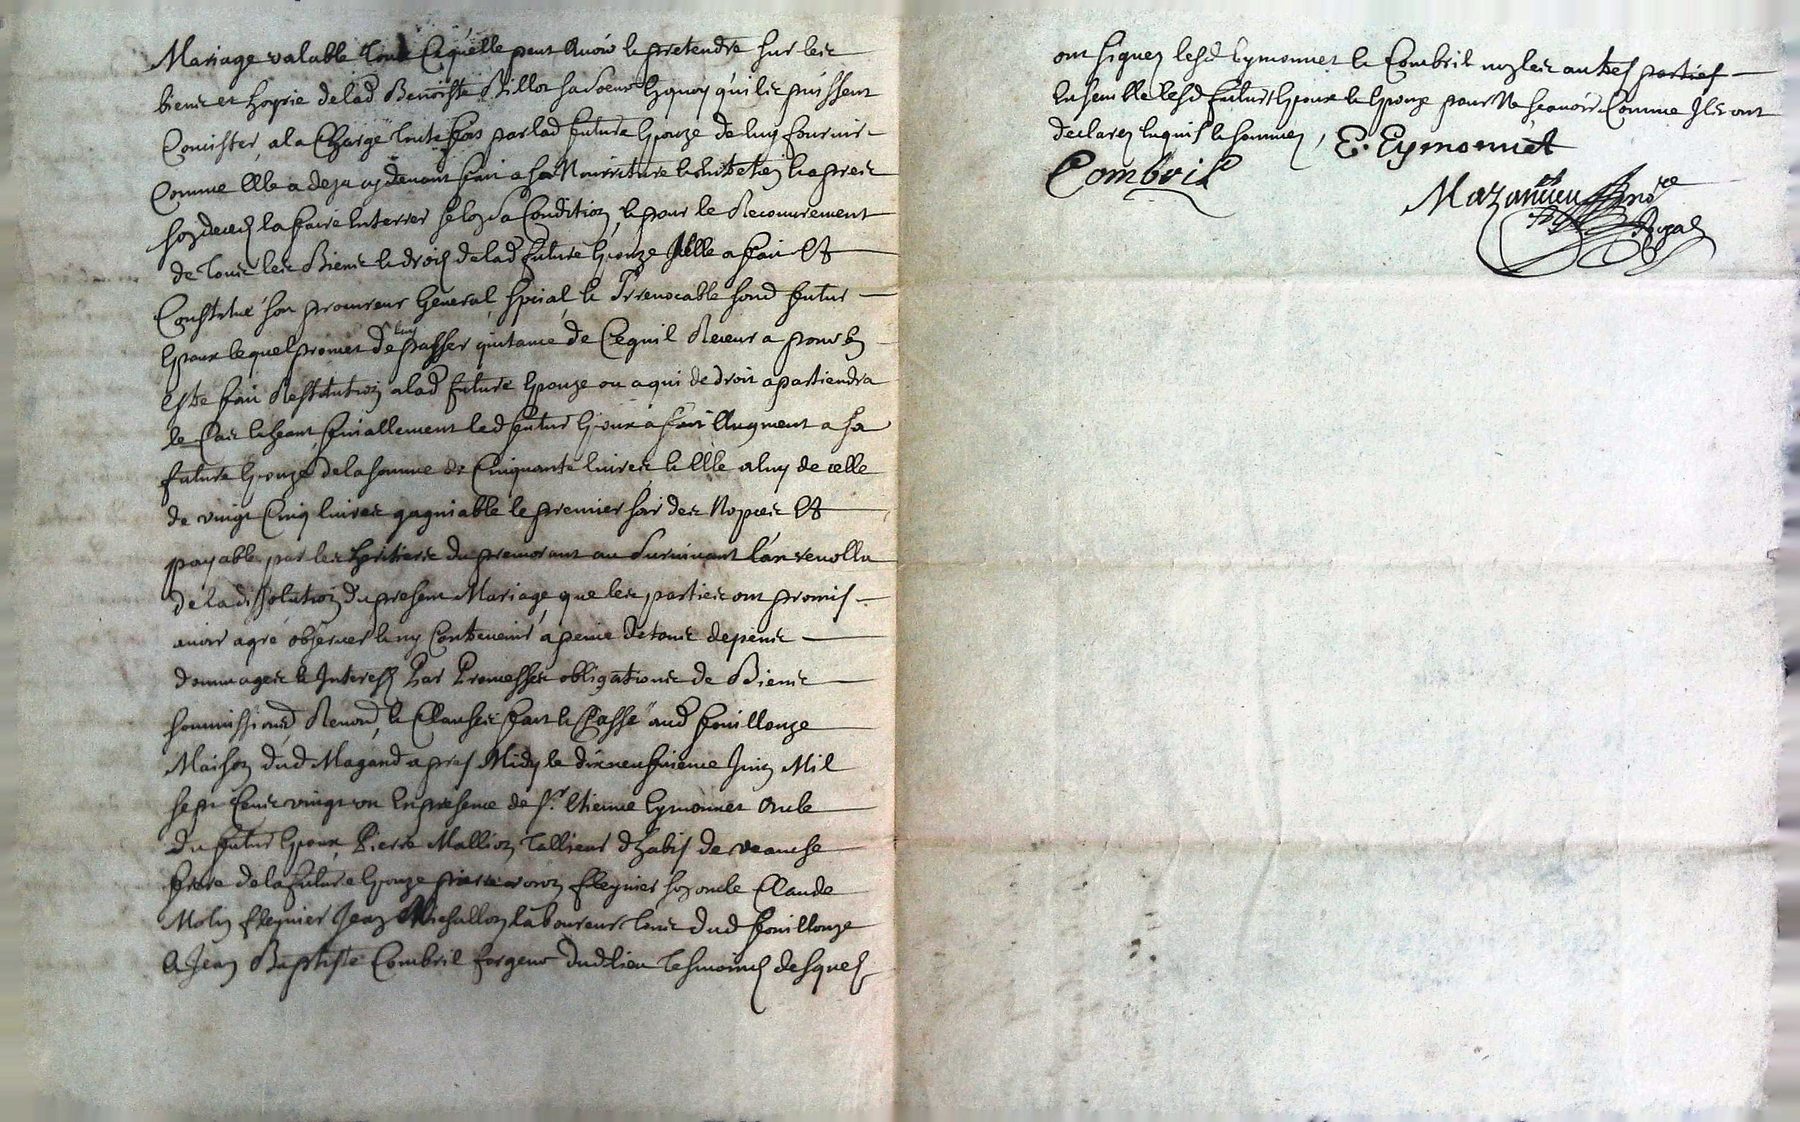 Mariage valable tout Ce quelle peut Avoir & pretendre sur les
biens et hoyrie de lad Benoiste Billot sa Soeur En quoy quils puissent
Concister, a la Charge toute fois par lad future Epouze de luy fournir
Comme Elle a deja cy devant fait a sa Nourriture & entretien & apres
son deced la faire Enterrer selon sa Condition, & pour le Recouvrement
de tous les Biens & droid de lad future Epouze Jcelle a fait Et
Constitué son procureur General, special, & Jrrevocable sond futur
Epoux lequel promet de luy passer quitance de Cequil Recevra pour En
Estre fait Restitution a lad future Epouze ou a qui de droit apartiendra
le Cas Eheant finallement led futur Epoux a fait Augment a sa
future Epouze de la somme de Cinquante livres & Elle a luy de celle
de vingt Cinq livres gagniable le premier soir des Nopces Et
payable par les heritiers du premorant au Survivant l'an revollu
de la dissolution du present Mariage, que les parties ont promis
avoir agré observer & ny Contrevenir a peine de tous depens
dommages & Interest Par Promesses obligations de Biens
soummissions, Renond, & Clauses fait & Passé aud fouillouze
Maison dud Magand apres Midy le dixneufvieme Juin Mil
sept Cents vingt un En presence de sr. Etienne Eymonnet Oncle
du futur Epoux, Pierre Mallion Tallieur dhabis de veauche
frere de la future Epouze pierre fleynier son oncle Claude
Molin fleynier Jean Michallon laboureurs tous dud fouillouze
& Jean Baptiste Combril forgeur dud lieu tesmoins desquels
ont signez lesd Eymonnet & Combril non les autres parties
Ensemble lesd futurs Epoux & Epouze pour Ne scavoir Comme Ils ont
declarez Enquis & sommez, E. Eymonnet
Combril
Mazancieu nore
Royal